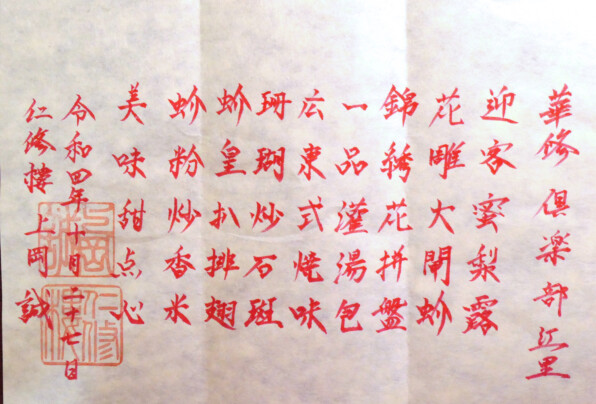 華修倶楽部 江里
迎客蜜梨露
花雕大閘蚧
錦綉花拼盤
一品灌湯包
広東式焼味
珊瑚炒石斑
蚧皇扒排翅
蚧粉炒香米
美味甜点心
令和四年十月二十七日
仁修樓 上岡誠
仁修樓